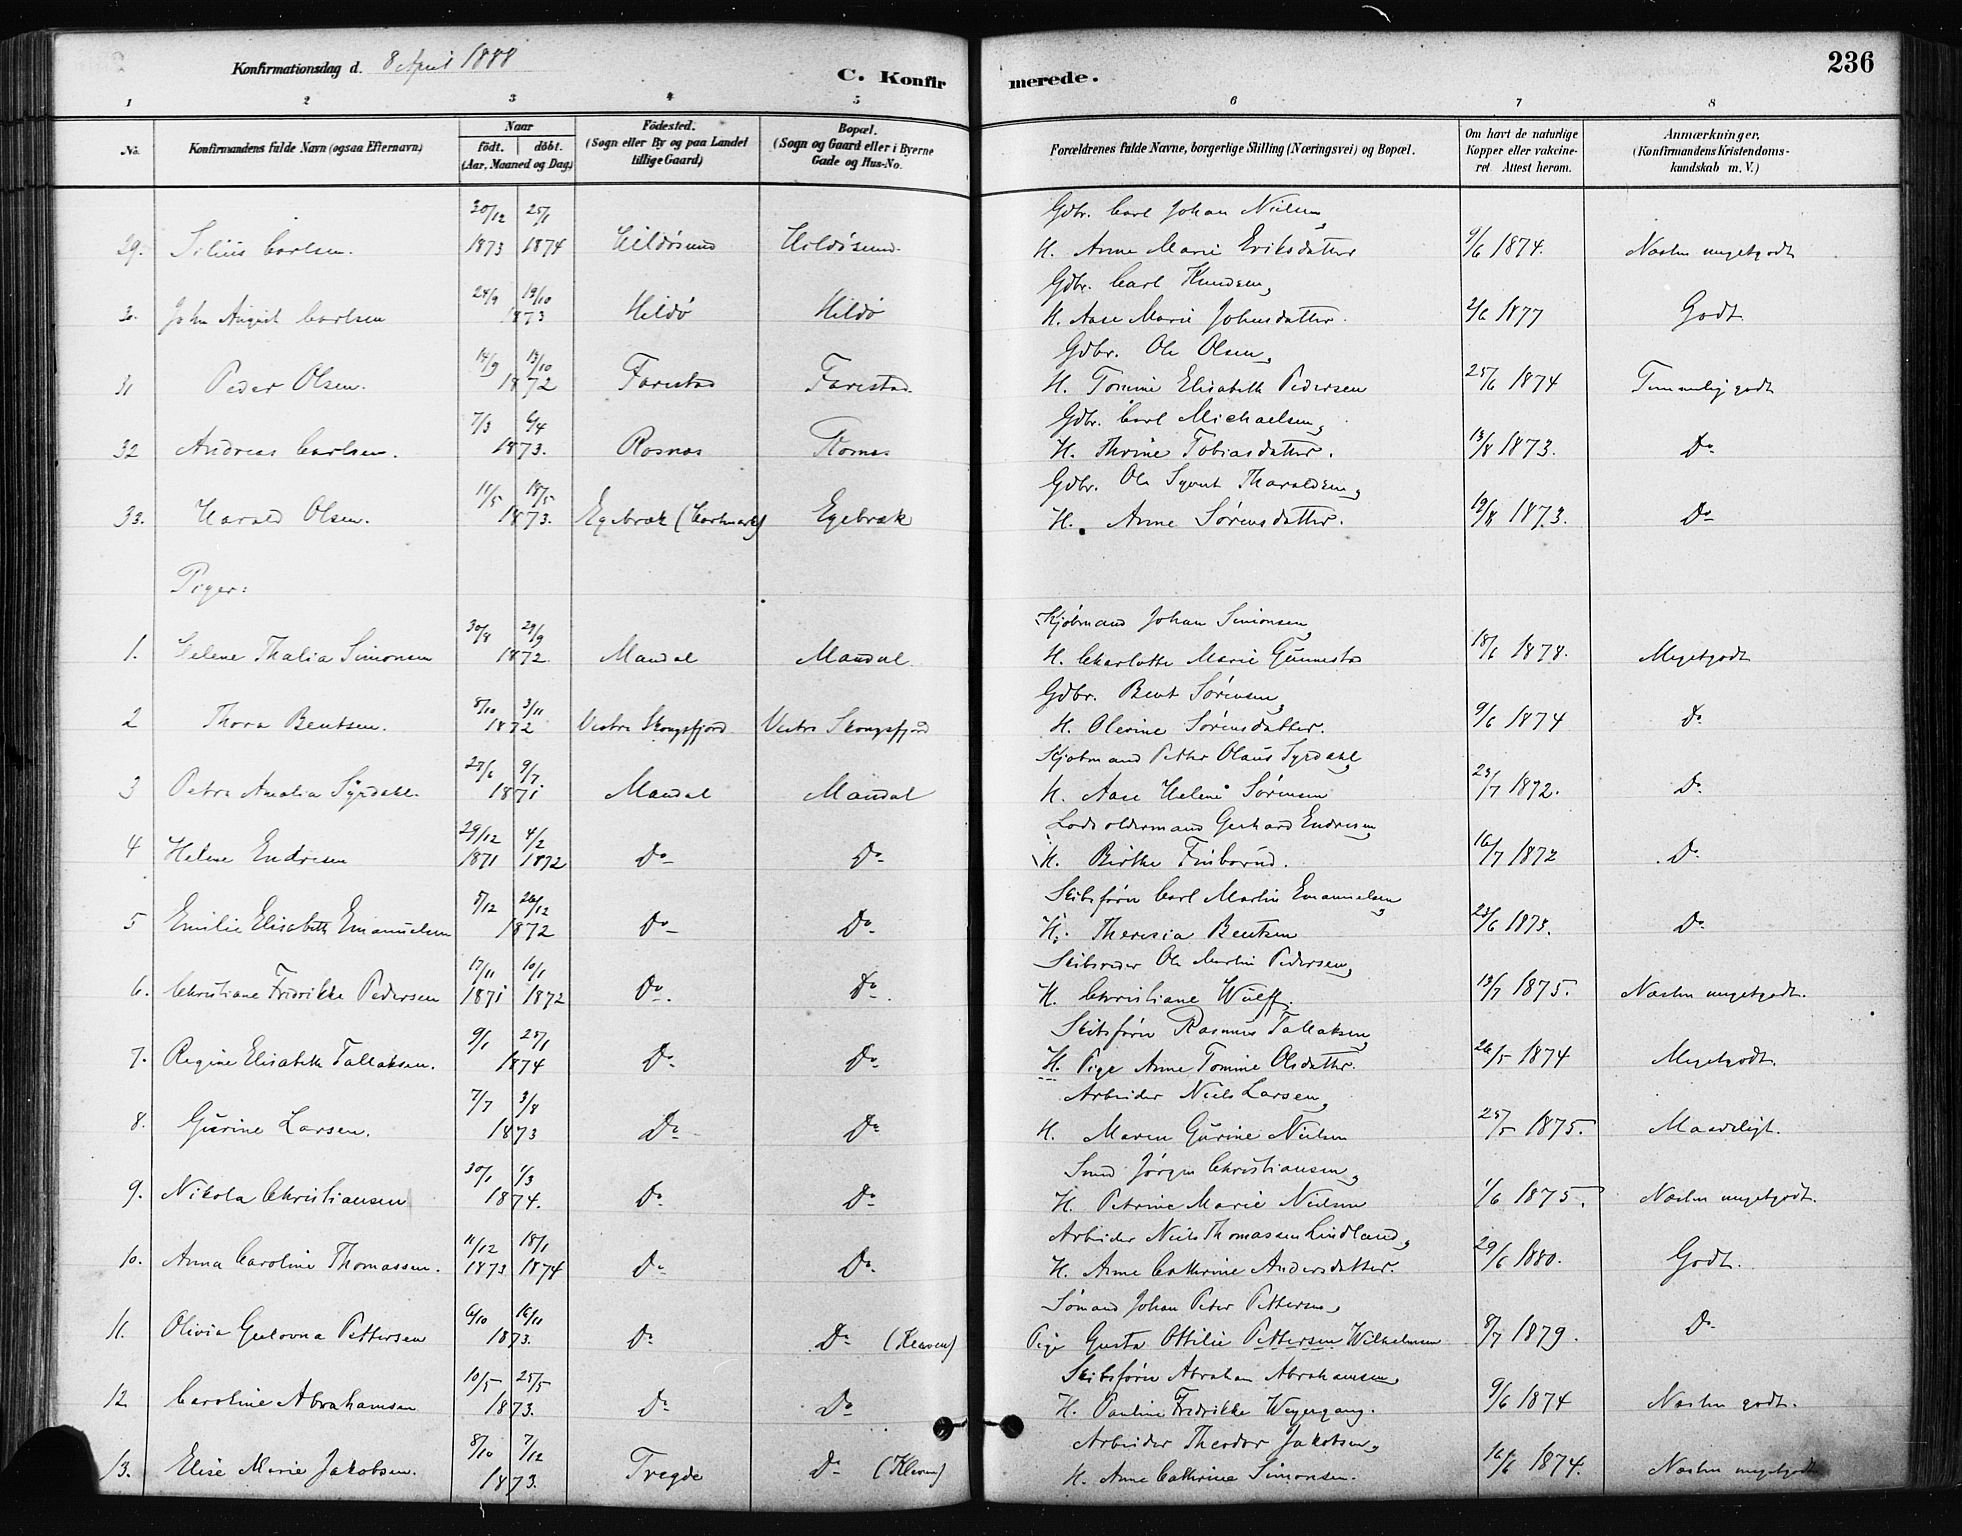 Konfirmationsdag d. 8 April 1888
C. Konfirmerede.
236
1 2 3 4 5 6 7 8
No. Konfirmandens fulde Navn (ogsaa Efternavn) Naar født. døbt. (Aar, Maaned og Dag.) Födested. (Sogn eller By og paa Landet tillige Gaard) Bopæl. (Sogn og Gaard eller i Byerne Gade og Hus-No. Forældrenes fulde Navne, borgerlige Stilling (Næringsvei) og Bopæl. Om havt de naturlige Kopper eller vakcineret. Attest herom. Anmærkninger. (Konfirmandens Kristendomskundskab m. V.)
30/12 25/1 Gdbr. Carl Johan Nielsen,
29. Silius Carlsen. 1873 1874 Hildøsund Hildøsund. H. Anne Marie Eriksdatter 9/6 1874. Næsten megetgodt
24/9 19/10 Gdbr. Carl Knudsen,
John August Carlsen 1873 Hildø Hildø H. Aase Marie Johnsdatter. 2/6 1877 Godt
14/9 13/10 Gdbr. Ole Olsen,
31 Peder Olsen. 1872 Farestad Farestad. H. Tomine Elisabeth Pedersen 25/6 1874 Temmelig godt
7/3 6/4 Gdbr. Carl Michaelsen,
32 Andreas Carlsen. 1873. Rosnæs H. Thrine Tobiasdatter. 13/8 1873. Do
11/5 18/5 Gdbr. Ole Syvert Tharaldsen,
33. Harald Olsen. 1873. Egebræk Egebræk H. Anne Sørensdatter. 19/8 1873. Do
Piger:
30/8 29/9 Kjøbmand Johan Simonsen,
1. Helene Thalia Simonsen 1872. Mandal Mandal. H. Charlotte Marie Gunnestad 18/6 1878. Megetgodt
8/10 3/11 Gdbr. Bent Sørensen,
2 Thora Bentsen. 1872 Vestre Skogsfjord Vestre Skogsfjord H. Olerine Sørensdatter. 9/6 1874 Do
27/6 9/7 Kjøbmand Petter Olaus Syrdahl,
3 Petra Amalia Syrdahl. 1871 Mandal Mandal H. Aase Helene Sørensen 23/7 1872. Do
29/12 4/2 Lodsoldermand Gerhard Endresen,
4 Helene Endresen 1871 1872 Do Do H. Birthe Finborud. 16/7 1872 Do
8/12 26/12 Skibsfører Carl Martin Emanuelsen,
5 Emilie Elisabeth Emanuelsen 1872 Do Do H. Theresia Bentsen 23/6 1873. Do
17/11 10/1 Skibsreder Ole Martin Pedersen,
6. Christiane Fredrikke Pedersen 1871 1872 Do. Do. H. Christiane Wulff. 19/7 1875. Næsten megetgodt.
9/1 25/1 Skibsfører Rasmus Tallaksen,
7. Regine Elisabeth Tallaksen. 1874 Do Do H. Pige Anne Tomine Olsdatter. 26/5 1874 Megetgodt.
7/7 3/8 Arbeider Niels Larsen,
8. Gurine Larsen. 1873 Do Do H. Maren Gurine Nielsen 25/5 1875. Maadeligt.
30/1 1/3 Smed Jørgen Christiansen,
9. Nikola Christiansen 1874. Do Do H. Petrine Marie Nielsen 1/6 1875. Næsten megetgodt.
11/12 18/1 Arbeider Niels Thomassen Lindland,
10. Anna Caroline Thomassen. 1873 1874 Do Do. H. Anne Cathrine Andersdatter. 29/6 1880. Godt.
6/10 16/11 Sømand Johan Peter Pettersen,
11. Olivia Gustovna Pettersen 1873. Do Do (Kleven) Pige Gusta Ottilie Pettersen Wilhelmsen 8/7 1879. Do
10/5 25/5 Skibsfører Abraham Abrahamsen,
12 Caroline Abrahamsen 1873. Do Do H. Pauline Fredrikke Weyergang. 9/6 1874 Næsten godt.
8/10 7/12 Arbeider Theodor Jakobsen,
13. Elise Marie Jakobsen. 1873. Tregde Do (Kleven) H. Anne Cathrine Simonsen. 16/6 1874. Næsten megetgodt